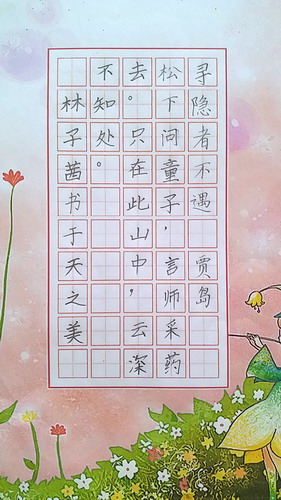 寻隐者不遇 贾岛
松下问童子，言师采药
去。只在此山中，云深
不知处。
林子茜书于天之美